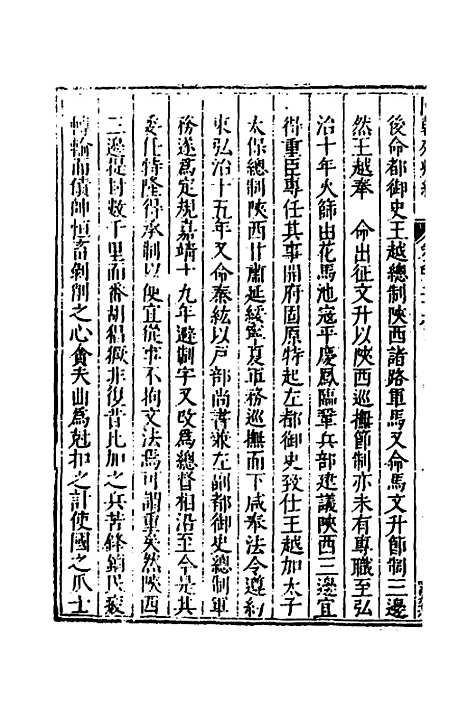 後命都御史王越總制陝西諸路軍馬又命馬文升節制三邊
然王越奉　命出征文升以陝西巡撫節制亦未有專職至弘
治十年火篩由花馬池寇平慶鳳臨鞏兵部建議陝西三邊宜
得重臣專任其事開府固原特起左都御史致仕王越加太子
太保總制陝西甘肅延綏寧夏軍務巡撫而下咸奉法令遵約
束弘治十五年又命秦紘以戶部尚書兼左副都御史總制軍
務遂爲定規嘉靖十九年避制字又改爲總督相沿至今是其
委任特隆得承制以便宜從事不拘文法焉可謂重矣然陝西
三邊提封數千里而番胡猖獗非復昔比加之兵苦鋒鏑民疲
轉輸而債帥恒畜剝削之心貪夫山爲尅扣之計使國之爪士